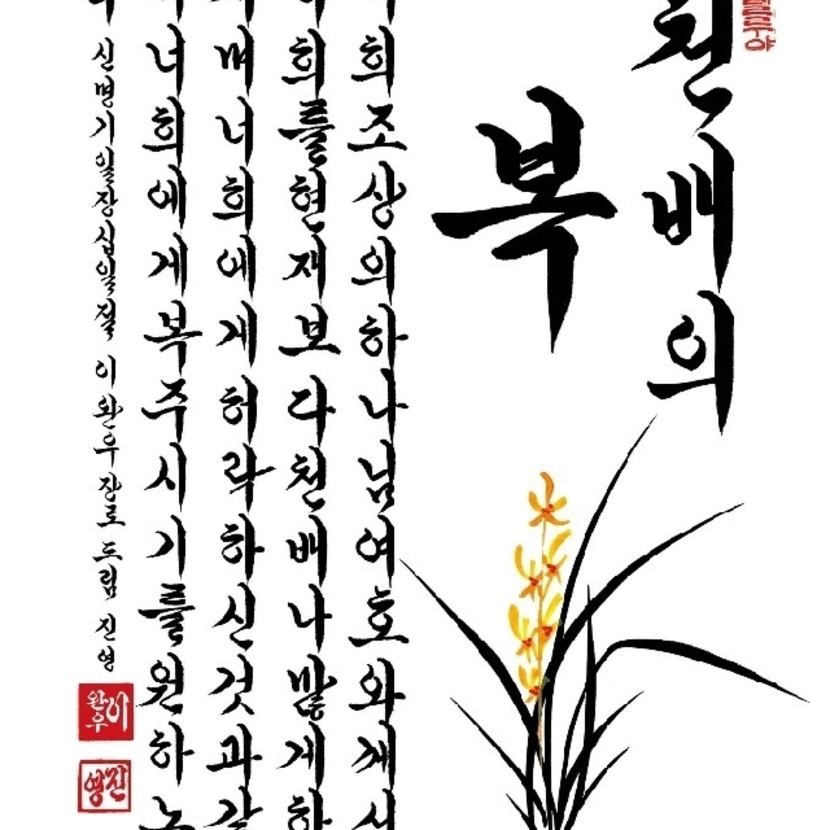 천배의
복
희조상의하나님여호와께서
희를현재보다천배나많게하
며너희에게허락하신것과같
너희에게복주시기를원하노
신명기일장십일절 이완우장로드림 진영
이완우
진영